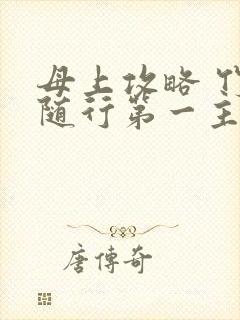 母上攻略
随行第一主
唐傳奇